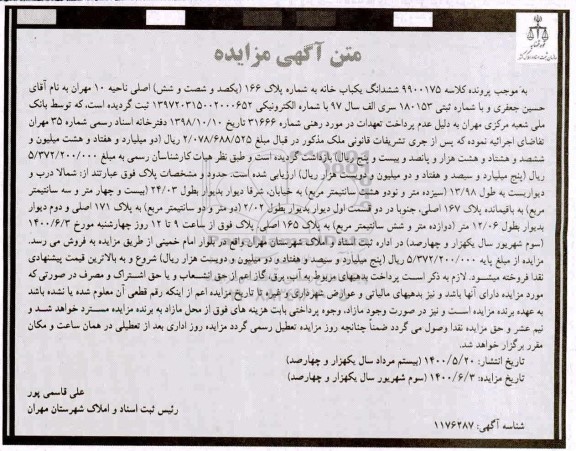 متن آگهی مزایده
به موجب پرونده کلاسه ۹۹۰۰۱۷۵ ششدانگ یکباب خانه به شماره پلاک ۱۶۶ (یکصد و شصت و شش) اصلی ناحیه ۱۰ مهران به نام آقای
حسین جعفری و با شماره ثبتی ۱۸۰۱۵۳ سری الف سال ۹۷ با شماره الکترونیکی ۱۳۹۷۲۰۳۱۵۰۰۲۰۰۰۶۵۲ ثبت گردیده است، که توسط بانک
ملی شعبه مرکزی مهران به دلیل عدم پرداخت تعهدات در مورد رهنی شماره ۳۱۶۶۶ تاریخ ۱۳۹۸/۱۰/۱۰ دفترخانه اسناد رسمی شماره ۳۵ مهران
تقاضای اجرائیه نموده که پس از جری تشریفات قانونی ملک مذکور در قبال مبلغ ۲/۰۷۸/۶۸۸/۵۲۵ ریال (دو میلیارد و هفتاد و هشت میلیون و
ششصد و هشتاد و هشت هزار و پانصد و بیست و پنج ریال) بازداشت گردیده است و طبق نظر هیات کارشناسان رسمی به مبلغ ۵/۳۷۲/۲۰۰/۰۰۰
ریال (پنج میلیارد و سیصد و هفتاد و دو میلیون و دویست هزار ریال) ارزیابی شده است. حدود و مشخصات پلاک فوق عبارتند از: شمالا درب و
دیواریست به طول ۱۳/۹۸ (سیزده متر و نودو هشت سانتیمتر مربع) به خیابان، شرقا دیوار بدیوار بطول ۲۴/۰۳ (بیست و چهار متر و سه سانتیمتر
مربع) به باقیمانده پلاک ۱۶۷ اصلی، جنوبا در دو قسمت اول دیوار بدیوار بطول ۲/۰۲ (دو متر و دو سانتیمتر مربع) به پلاک ۱۷۱ اصلی و دوم دیوار
بدیوار بطول ۱۲/۰۶ متر (دوازده متر و شش سانتیمتر مربع) به پلاک ۱۶۵ اصلی. پلاک فوق از ساعت ۹ تا ۱۲ روز چهارشنبه مورخ ۱۴۰۰/۶/۳
(سوم شهریور سال یکهزار و چهارصد) در اداره ثبت اسناد و املاک شهرستان مهران واقع در بلوار امام خمینی از طریق مزایده به فروش می رسد.
مزایده از مبلغ پایه ۵/۳۷۲/۲۰۰/۰۰۰ ریال (پنج میلیارد و سیصد و هفتاد و دو میلیون و دویست هزار ریال) شروع و به بالاترین قیمت پیشنهادی
نقدا فروخته میشود. لازم به ذکر است پرداخت بدهیهای مربوط به آب، برق، گاز اعم از حق انشعاب و یا حق اشتراک و مصرف در صورتی که
مورد مزایده دارای آنها باشد و نیز بدهیهای مالیاتی و عوارض شهرداری و غیره تا تاریخ مزایده اعم از اینکه رقم قطعی آن معلوم شده یا نشده باشد
به عهده برنده مزایده است و نیز در صورت وجود مازاد، وجوه پرداختی بابت هزینه های فوق از محل مازاد به برنده مزایده مسترد خواهد شد و
نیم عشر و حق مزایده نقدا وصول می گردد ضمناً چنانچه روز مزایده تعطیل رسمی گردد مزایده روز اداری بعد از تعطیلی در همان ساعت و مکان
مقرر برگزار خواهد شد.
تاریخ انتشار: ۱۴۰۰/۵/۲۰ (بیستم مرداد سال یکهزار و چهارصد)
تاریخ مزایده: ۱۴۰۰/۶/۳ (سوم شهریور سال یکهزار و چهارصد)
علی قاسمی پور
رئیس ثبت اسناد و املاک شهرستان مهران
شناسه آگهی: ۱۱۷۶۲۸۷